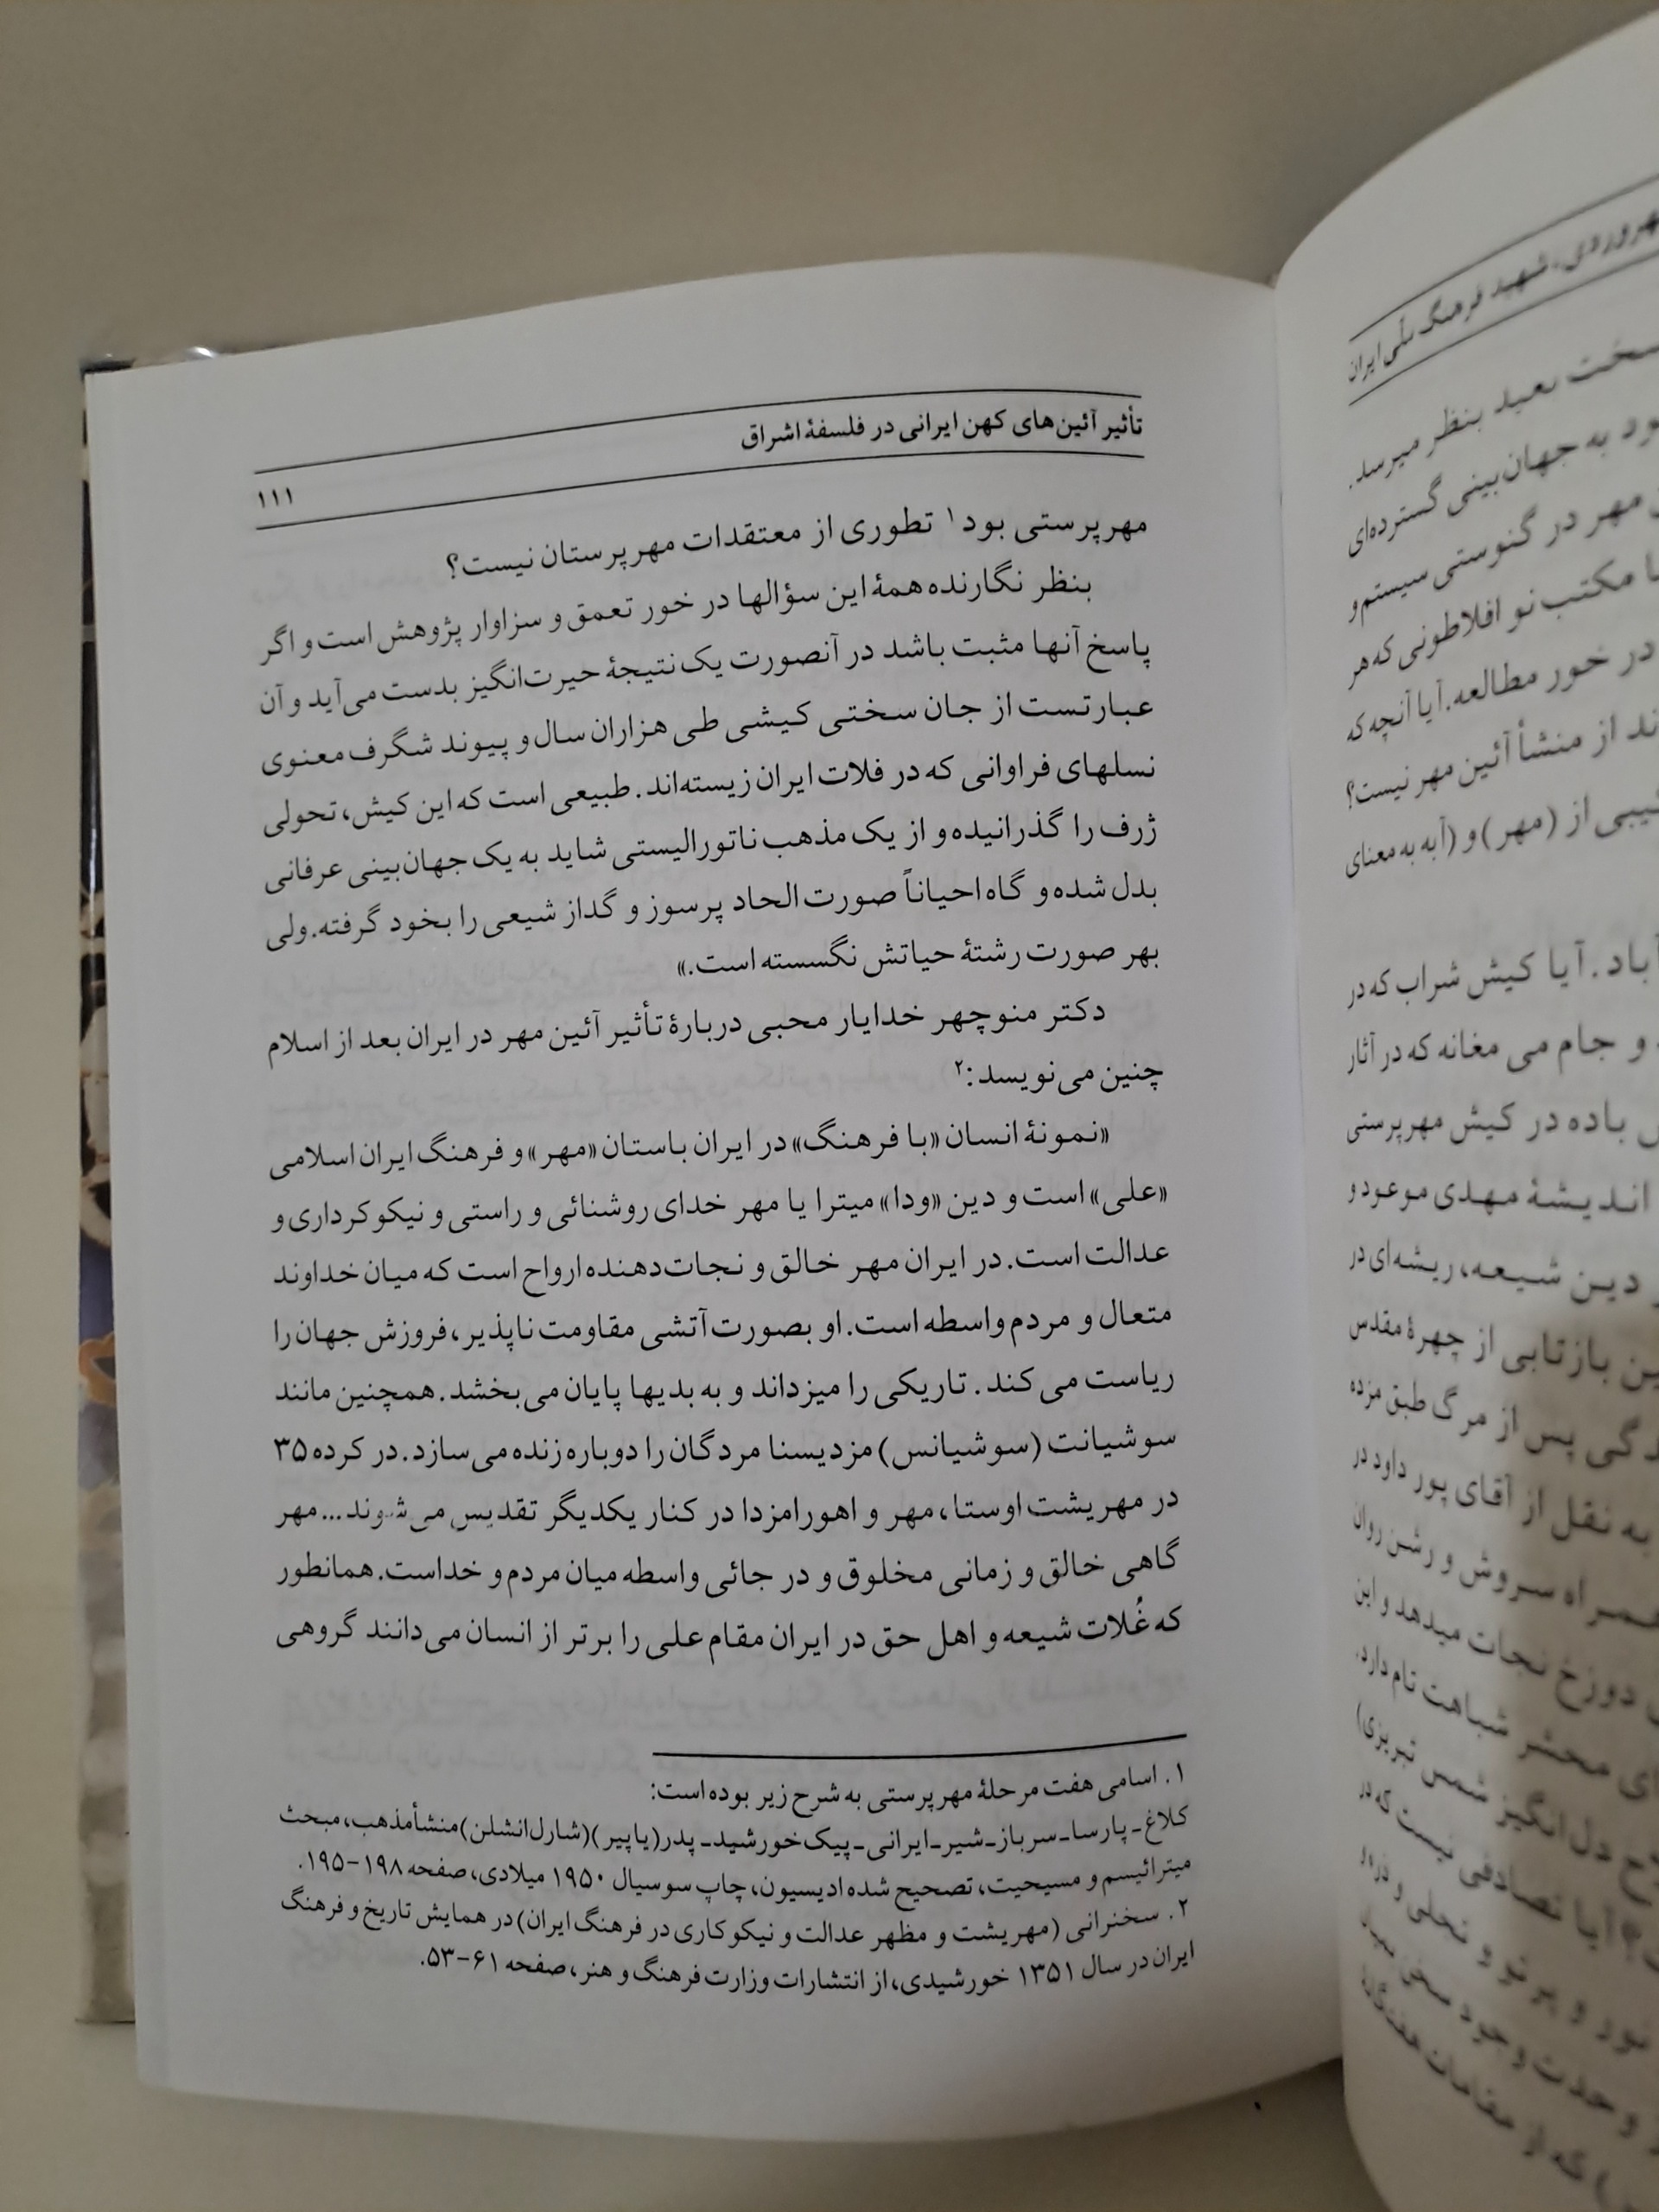 تأثیر آئین‌های کهن ایرانی در فلسفهٔ اشراق
۱۱۱
مهرپرستی بود۱ تطوری از معتقدات مهرپرستان نیست؟
بنظر نگارنده همهٔ این سؤالها در خور تعمق و سزاوار پژوهش است و اگر
پاسخ آنها مثبت باشد در آنصورت یک نتیجهٔ حیرت‌انگیز بدست می‌آید و آن
عبارتست از جان سختی کیشی طی هزاران سال و پیوند شگرف معنوی
نسلهای فراوانی که در فلات ایران زیسته‌اند. طبیعی است که این کیش، تحولی
ژرف را گذرانیده و از یک مذهب ناتورالیستی شاید به یک جهان‌بینی عرفانی
بدل شده و گاه احیاناً صورت الحاد پرسوز و گداز شیعی را بخود گرفته. ولی
بهر صورت رشتهٔ حیاتش نگسسته است.»
دکتر منوچهر خدایار محبی دربارهٔ تأثیر آئین مهر در ایران بعد از اسلام
چنین می‌نویسد:۲
«نمونهٔ انسان «با فرهنگ» در ایران باستان «مهر» و فرهنگ ایران اسلامی
«علی» است و دین «ودا» میترا یا مهر خدای روشنائی و راستی و نیکوکرداری و
عدالت است. در ایران مهر خالق و نجات‌دهنده ارواح است که میان خداوند
متعال و مردم واسطه است. او بصورت آتشی مقاومت ناپذیر، فروزش جهان را
ریاست می‌کند. تاریکی را میزداند و به بدیها پایان می‌بخشد. همچنین مانند
سوشیانت (سوشیانس) مزدیسنا مردگان را دوباره زنده می‌سازد. در کرده ۳۵
در مهریشت اوستا، مهر و اهورامزدا در کنار یکدیگر تقدیس می‌شوند... مهر
گاهی خالق و زمانی مخلوق و در جائی واسطه میان مردم و خداست. همانطور
که غُلات شیعه و اهل حق در ایران مقام علی را برتر از انسان می‌دانند گروهی
۱. اسامی هفت مرحلهٔ مهرپرستی به شرح زیر بوده است:
کلاغ ـ پارسا ـ سرباز ـ شیر ـ ایرانی ـ پیک خورشید ـ پدر (یا پیر) (شارل انشلن) منشأ مذهب، مبحث
میترائیسم و مسیحیت، تصحیح شده ادیسیون، چاپ سوسیال ۱۹۵۰ میلادی، صفحه ۱۹۸-۱۹۵.
۲. سخنرانی (مهریشت و مظهر عدالت و نیکوکاری در فرهنگ ایران) در همایش تاریخ و فرهنگ
ایران در سال ۱۳۵۱ خورشیدی، از انتشارات وزارت فرهنگ و هنر، صفحه ۶۱-۵۳.
شهید فرهنگ ملّی ایران
سخت بعید بنظر میرسد.
به جهان‌بینی گسترده‌ای
مهر در گنوستی سیستم و
مکتب نو افلاطونی که هر
در خور مطالعه. آیا آنچه که
از منشأ آئین مهر نیست؟
از (مهر) و (آبه به معنای
آیا کیش شراب که در
و جام می مغانه که در آثار
باده در کیش مهرپرستی
اندیشهٔ مهدی موعود و
دین شیعه، ریشه‌ای در
بازتابی از چهرهٔ مقدس
پس از مرگ طبق مزده
به نقل از آقای پور داود در
سروش و رشن روان
دوزخ نجات میدهد و این
محشر شباهت تام دارد.
دل انگیز شمس تبریزی)
آیا تصادفی نیست که در
نور و پرتو و تجلی و
وحدت وجود سخن
که از مقامات